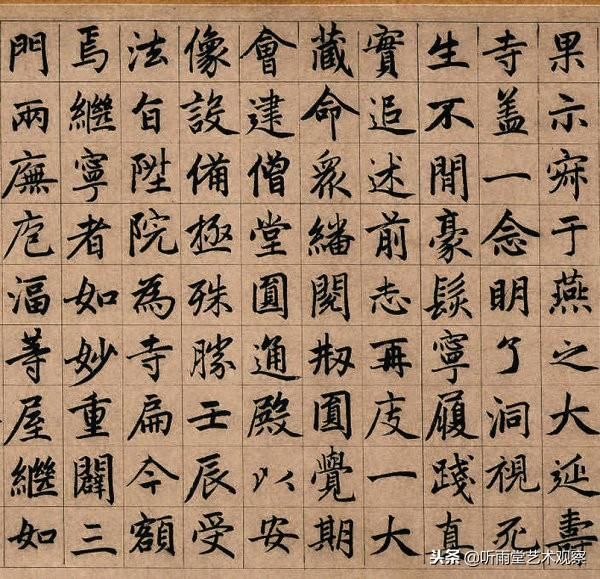 果示寂于燕之大延壽
寺盖一念明了洞視死
生不閒豪髮寧履踐真
實追述前志再庋一大
藏命衆繙閱剏圓覺期
會建僧堂圓通殿以安
像設備極殊勝壬辰受
法旨陞院為寺扁今額
焉繼寧者如妙重闢三
門兩廡庖湢等屋繼如
头条 @听雨堂艺术观察